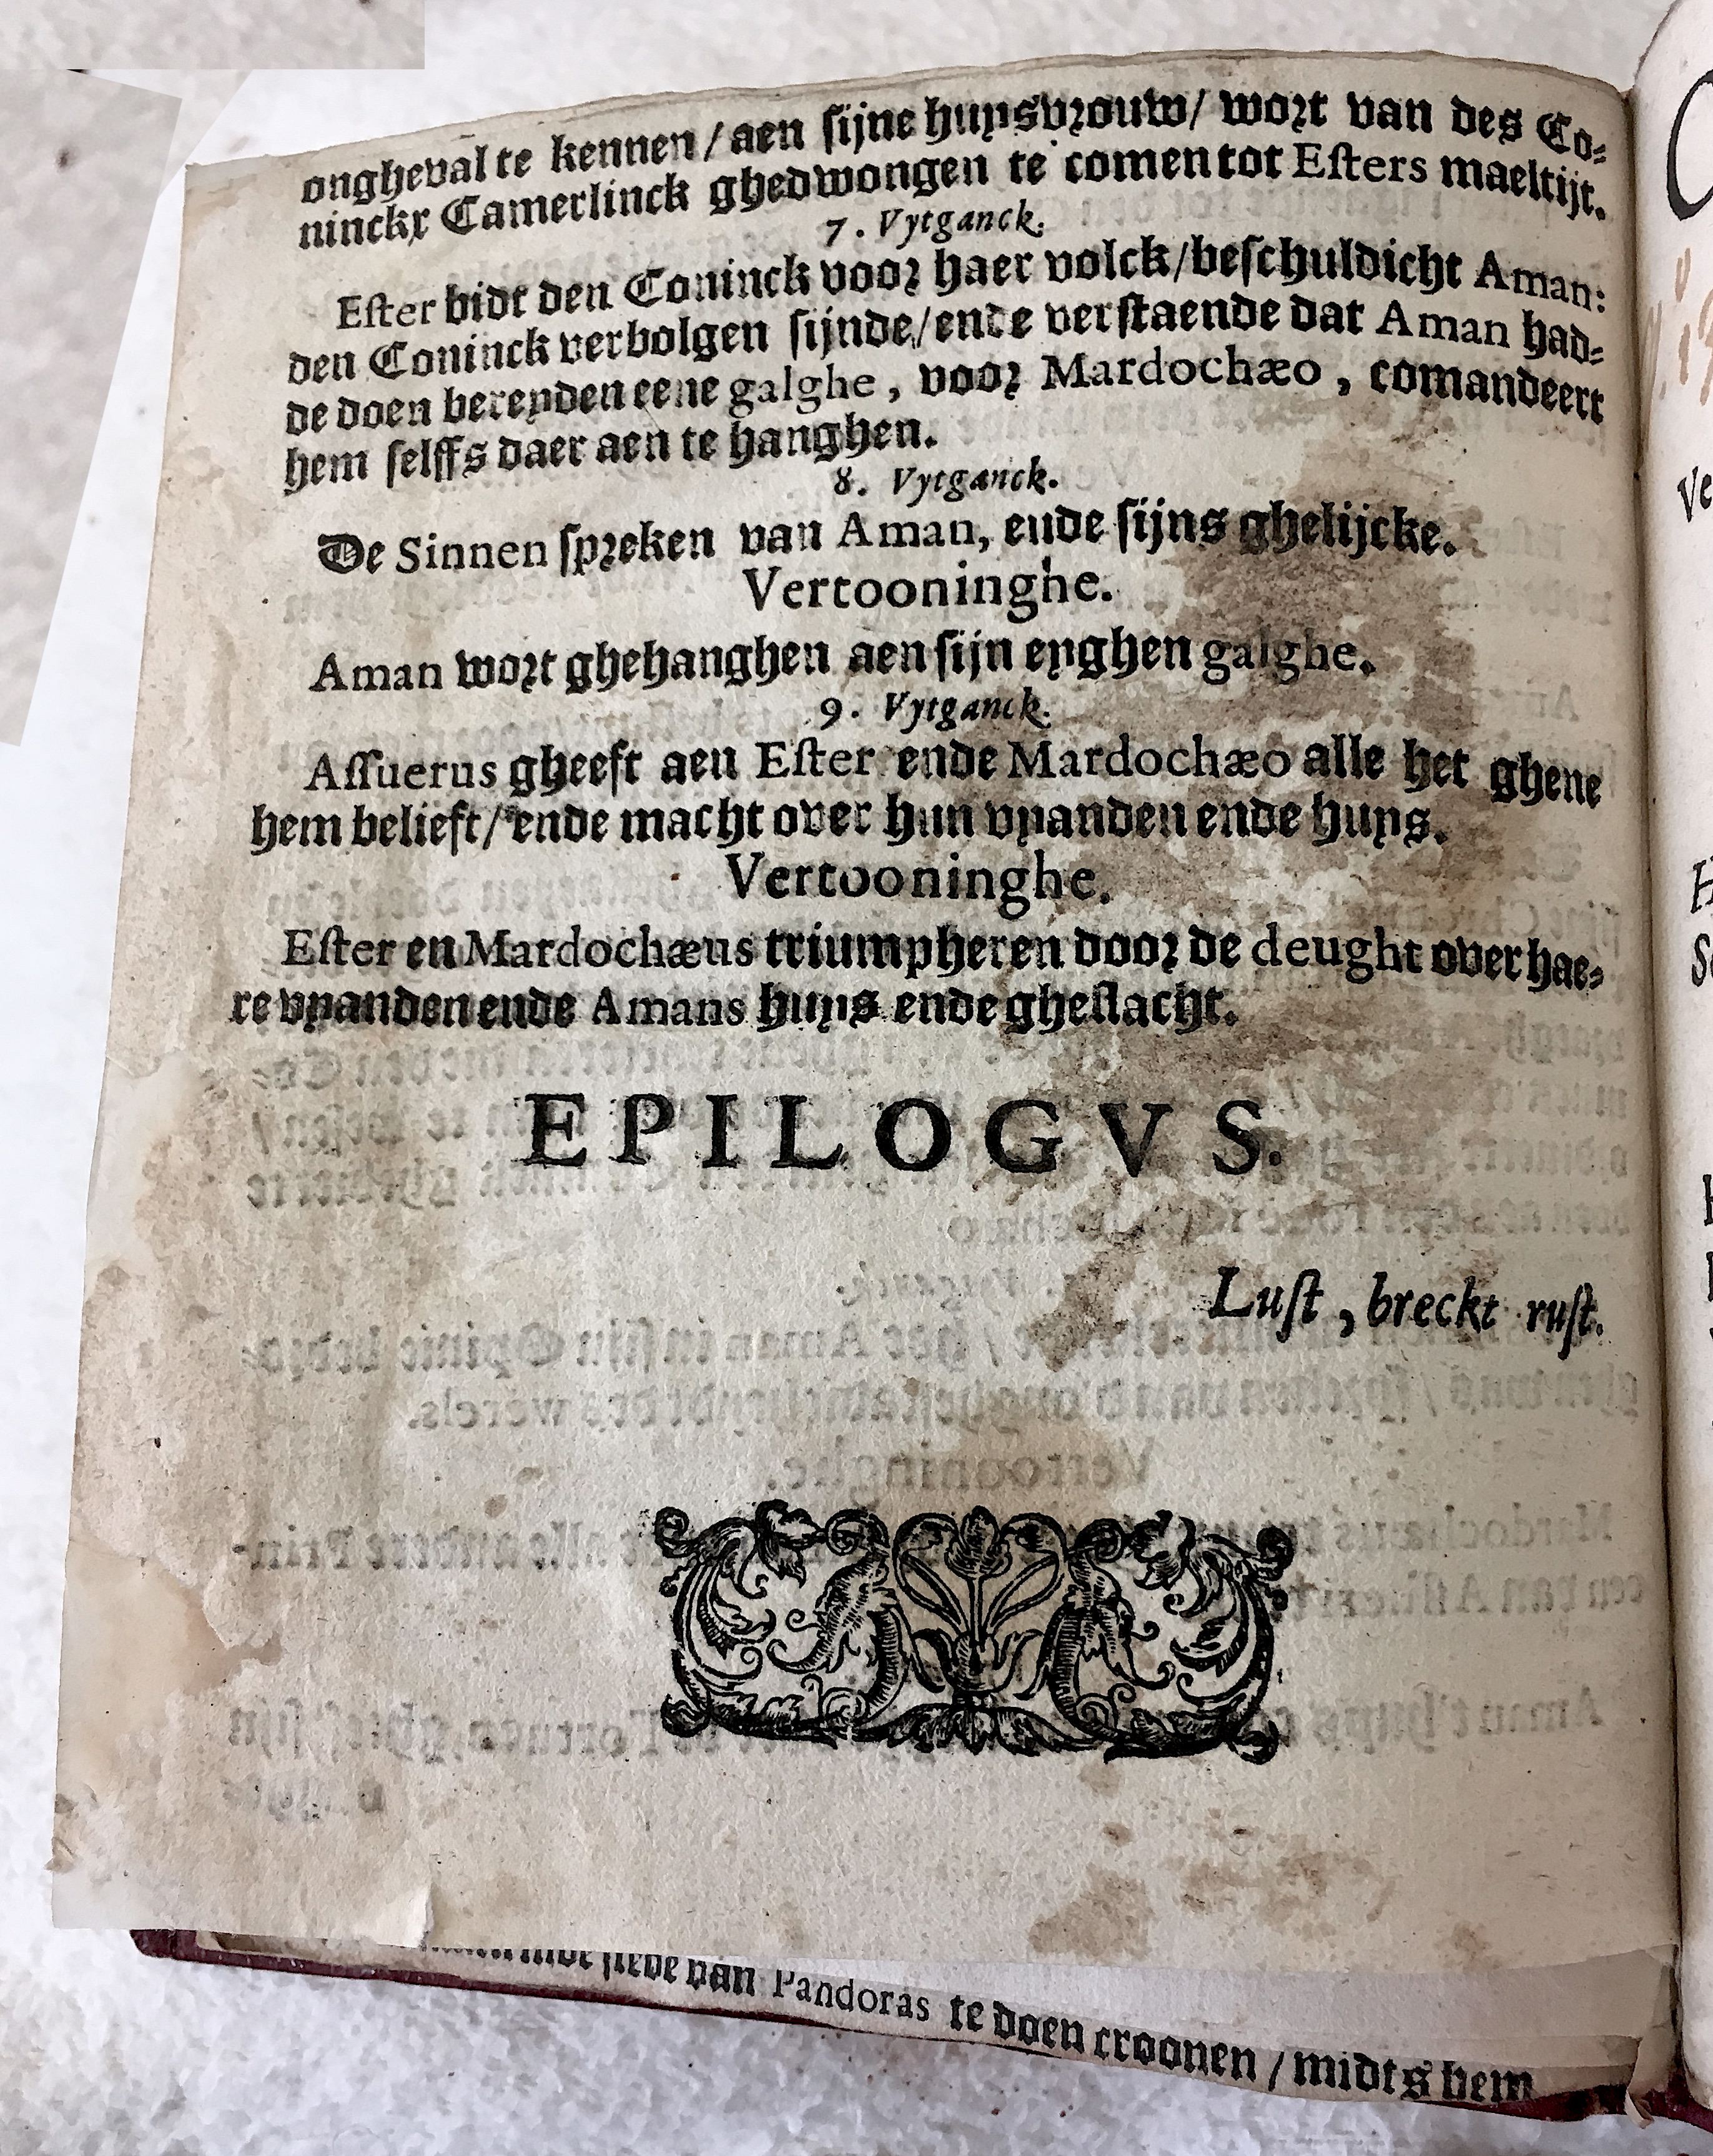 ongheval te kennen / aen ſijne huysvrouw / wort van des Co-
ninckx Camerlinck ghedwongen te comen tot Eſters maeltijt.
7. Vytganck.
Eſter bidt den Coninck voor haer volck / beſchuldicht Aman:
den Coninck verbolgen ſijnde / ende verſtaende dat Aman had-
de doen bereyden eene galghe, voor Mardochæo, comandeert
hem ſelffs daer aen te hanghen.
8. Vytganck.
De Sinnen ſpreken van Aman, ende ſijns ghelijcke.
Vertooninghe.
Aman wort ghehanghen aen ſijn eyghen galghe.
9. Vytganck.
Aſſuerus gheeft aen Eſter ende Mardochæo alle het ghene
hem belieft / ende macht over hun vyanden ende huys.
Vertooninghe.
Eſter en Mardochæus triumpheren door de deught over hae-
re vyanden ende Amans huys ende gheſlacht.
EPILOGVS.
Luſt, breckt ruſt.
van Pandoras te doen croonen / midts hem